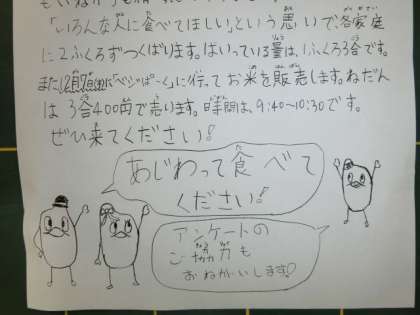 「いろんな人に食べてほしい」という思いで、各家庭
に2ふくろずつくばります。はいっている量は、1ふくろ3合です。
また12月7日(水)に「べじぱーく」に行ってお米を販売します。ねだん
は3合400円で売ります。時間は、9:40~10:30です。
ぜひ来てください!
あじわって食べて
ください!
アンケートの
ご協力も
おねがいします♡